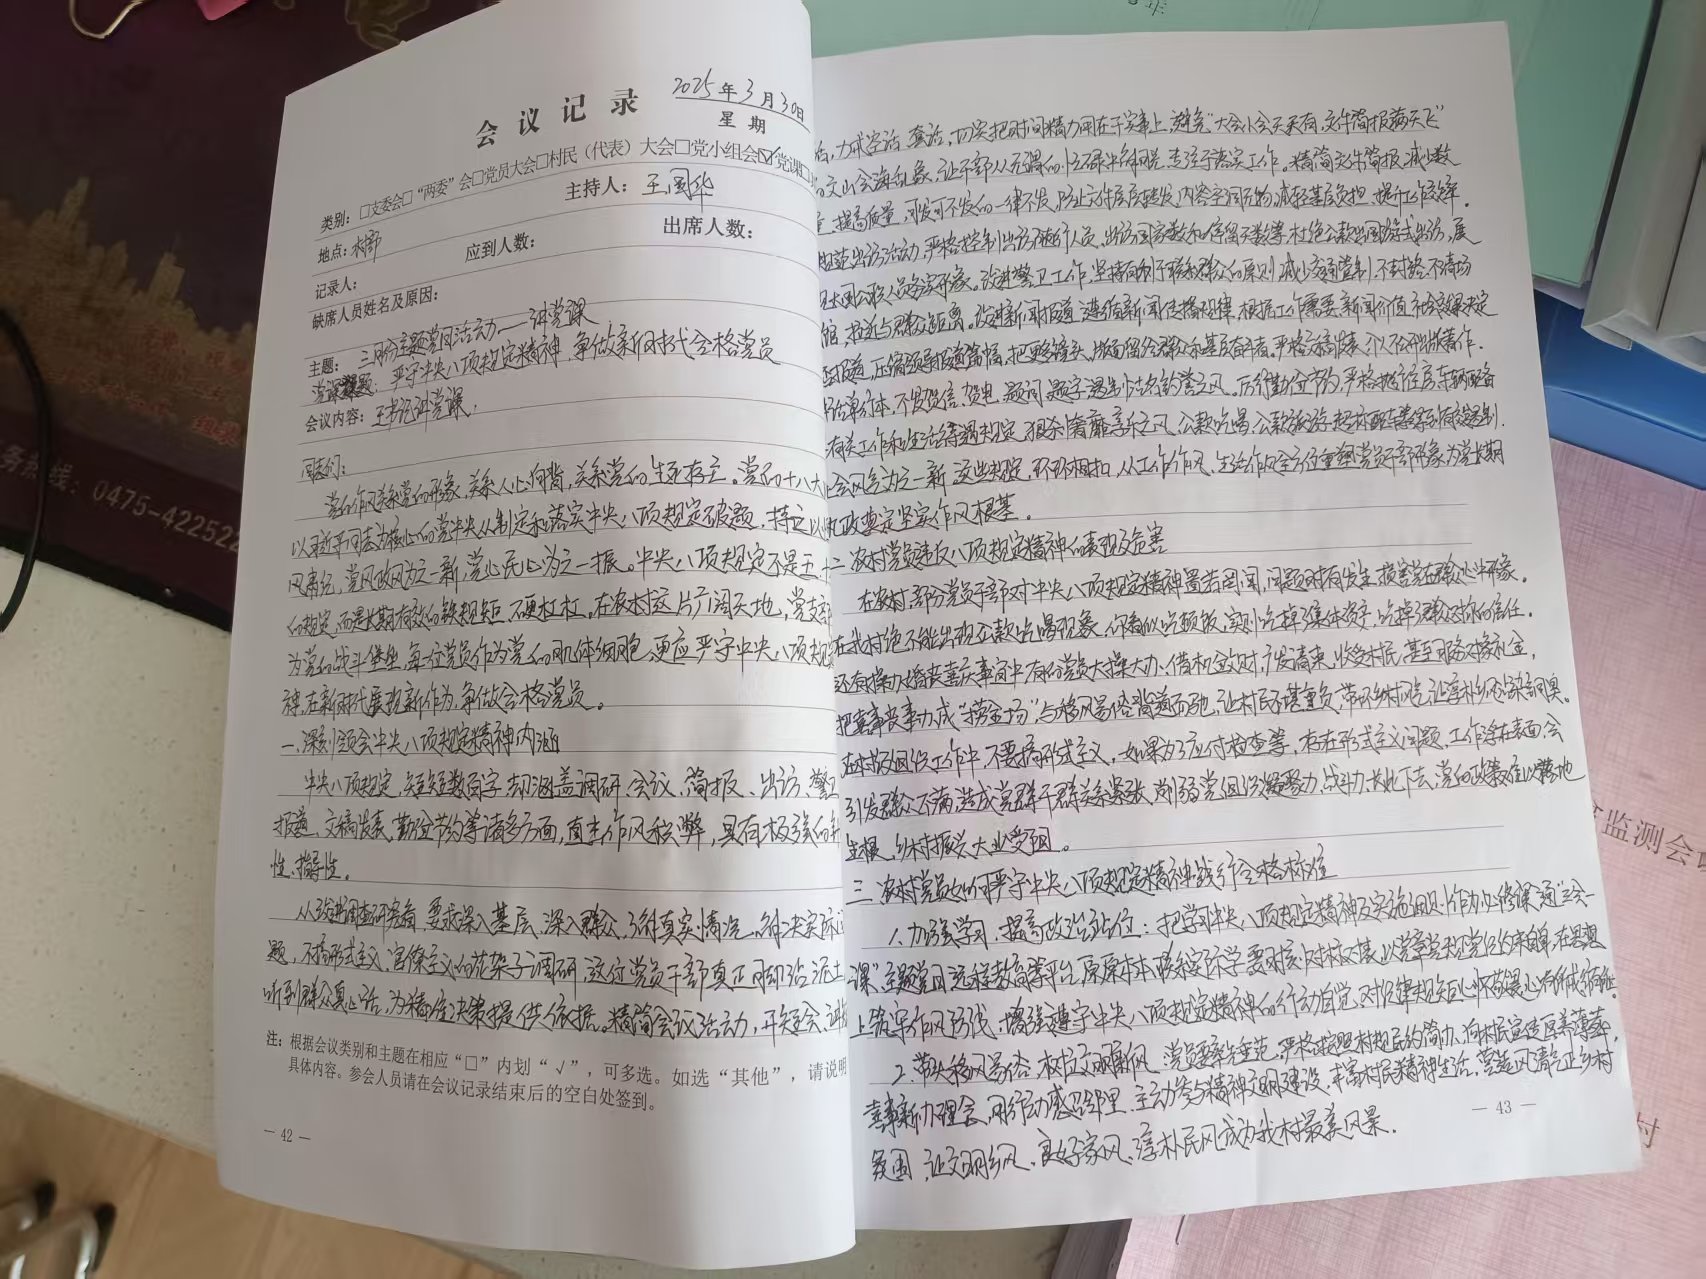 会议记录
2025年3月30日
星期
类别：□支委会□“两委”会□党员大会□村民（代表）大会□党小组会☑党课□
地点：
主持人：王国华
记录人：
应到人数：
出席人数：
缺席人员姓名及原因：
主题：三月份主题党日活动——讲党课
严守中央八项规定精神，争做新时代合格党员
会议内容：王书记讲党课.
同志们：
党的作风关系党的形象，关系人心向背，关系党的生死存亡。党的十八大
以习近平同志为核心的党中央从制定和落实中央八项规定破题，持之以
风肃纪，党风政风为之一新，党心民心为之一振。中央八项规定不是五
的规定，而是长期有效的铁规矩、硬杠杠。在农村这片广阔天地，党支部
为党的战斗堡垒，每一位党员作为党的肌体细胞，更应严守中央八项规定
神，在新时代展现新作为，争做合格党员。
一、深刻领会中央八项规定精神内涵
中央八项规定，短短数百字，却涵盖调研、会议、简报、出访、警卫
报道、文稿发表、勤俭节约等诸多方面，直击作风积弊，具有极强的
性、指导性。
从改进调查研究看，要求深入基层、深入群众，了解真实情况，解决实际问
题，不搞形式主义、官僚主义的花架子调研，这让党员干部真正
听到群众真心话，为精准决策提供依据。精简会议活动，开短会、讲
注：根据会议类别和主题在相应“□”内划“√”，可多选。如选“其他”，请说明
具体内容。参会人员请在会议记录结束后的空白处签到。
— 42 —
话，力戒空话、套话，切实把时间精力用在干实事上，避免“大会小会天天有，文件简报满天飞”
的文山会海乱象，让干部从无谓的忙碌中解脱，专注于落实工作。精简文件简报，减少数
量、提高质量，可发可不发的一律不发，防止文件层层转发，内容空洞无物，减轻基层负担，提升工作效率。
规范出访活动，严格控制出访随行人员、出访国家数和停留天数等，杜绝公款出国游式出访，展
公职人员务实形象。改进警卫工作，坚持有利于联系群众的原则，减少交通管制，不封路、不清场
馆，拉近与群众距离。改进新闻报道，遵循新闻传播规律，根据工作需要、新闻价值、社会效果决定
报道，压缩领导报道篇幅，把更多镜头、版面留给群众和基层奋斗者。严格文稿发表，个人不公开出版著作、
单行本，不发贺信、贺电，题词、题字，遏制沽名钓誉之风。厉行勤俭节约，严格执行住房、车辆配备
有关工作和生活待遇规定，狠刹奢靡享乐之风，公款吃喝、公款旅游、超标配车等
会风气为之一新，这些规定，环环相扣，从工作作风、生活作风全方位重塑党员干部形象，为党长期
执政奠定坚实作风根基。
二、农村党员违反八项规定精神的表现及危害
在农村，部分党员干部对中央八项规定精神置若罔闻，问题时有发生，损害党在群众心中形象。
在我村绝不能出现公款吃喝现象，你看似吃顿饭，实则吃掉集体资产，吃掉群众对你的信任。
还有操办婚丧喜庆事宜中，有的党员大操大办、借机敛财，广发请柬，收受村民甚至服务对象礼金，
把喜事丧事办成“捞金场”，与移风易俗背道而驰，让村民不堪重负，带坏乡村风气，让淳朴乡风染铜臭。
在村级组织工作中，不要搞形式主义，如果为了应付检查等，存在形式主义问题，工作浮在表面，会
引发群众不满，造成党群干群关系紧张，削弱党组织凝聚力、战斗力，长此下去，党的政策难以落地
生根，乡村振兴大业受阻。
三、农村党员如何严守中央八项规定精神，践行合格标准
1、加强学习，提高政治站位：把学习中央八项规定精神及实施细则作为必修课，通过“三会一
课”、主题党日、远程教育等平台，原原本本、联系实际学，要对标对表，以党章党规党纪约束自身，在思想
上筑牢作风防线，增强遵守中央八项规定精神的行动自觉，对纪律规矩心怀敬畏，
2、带头移风易俗，树立文明新风，党员要率先垂范，严格按照村规民约简办，向村民宣传厚养薄葬，
喜事新办理念，用行动感召邻里，主动参与精神文明建设，丰富村民精神生活，营造风清气正乡村
氛围，让文明乡风、良好家风、淳朴民风成为我村最美风景.
— 43 —
0475-422522
监测会
村